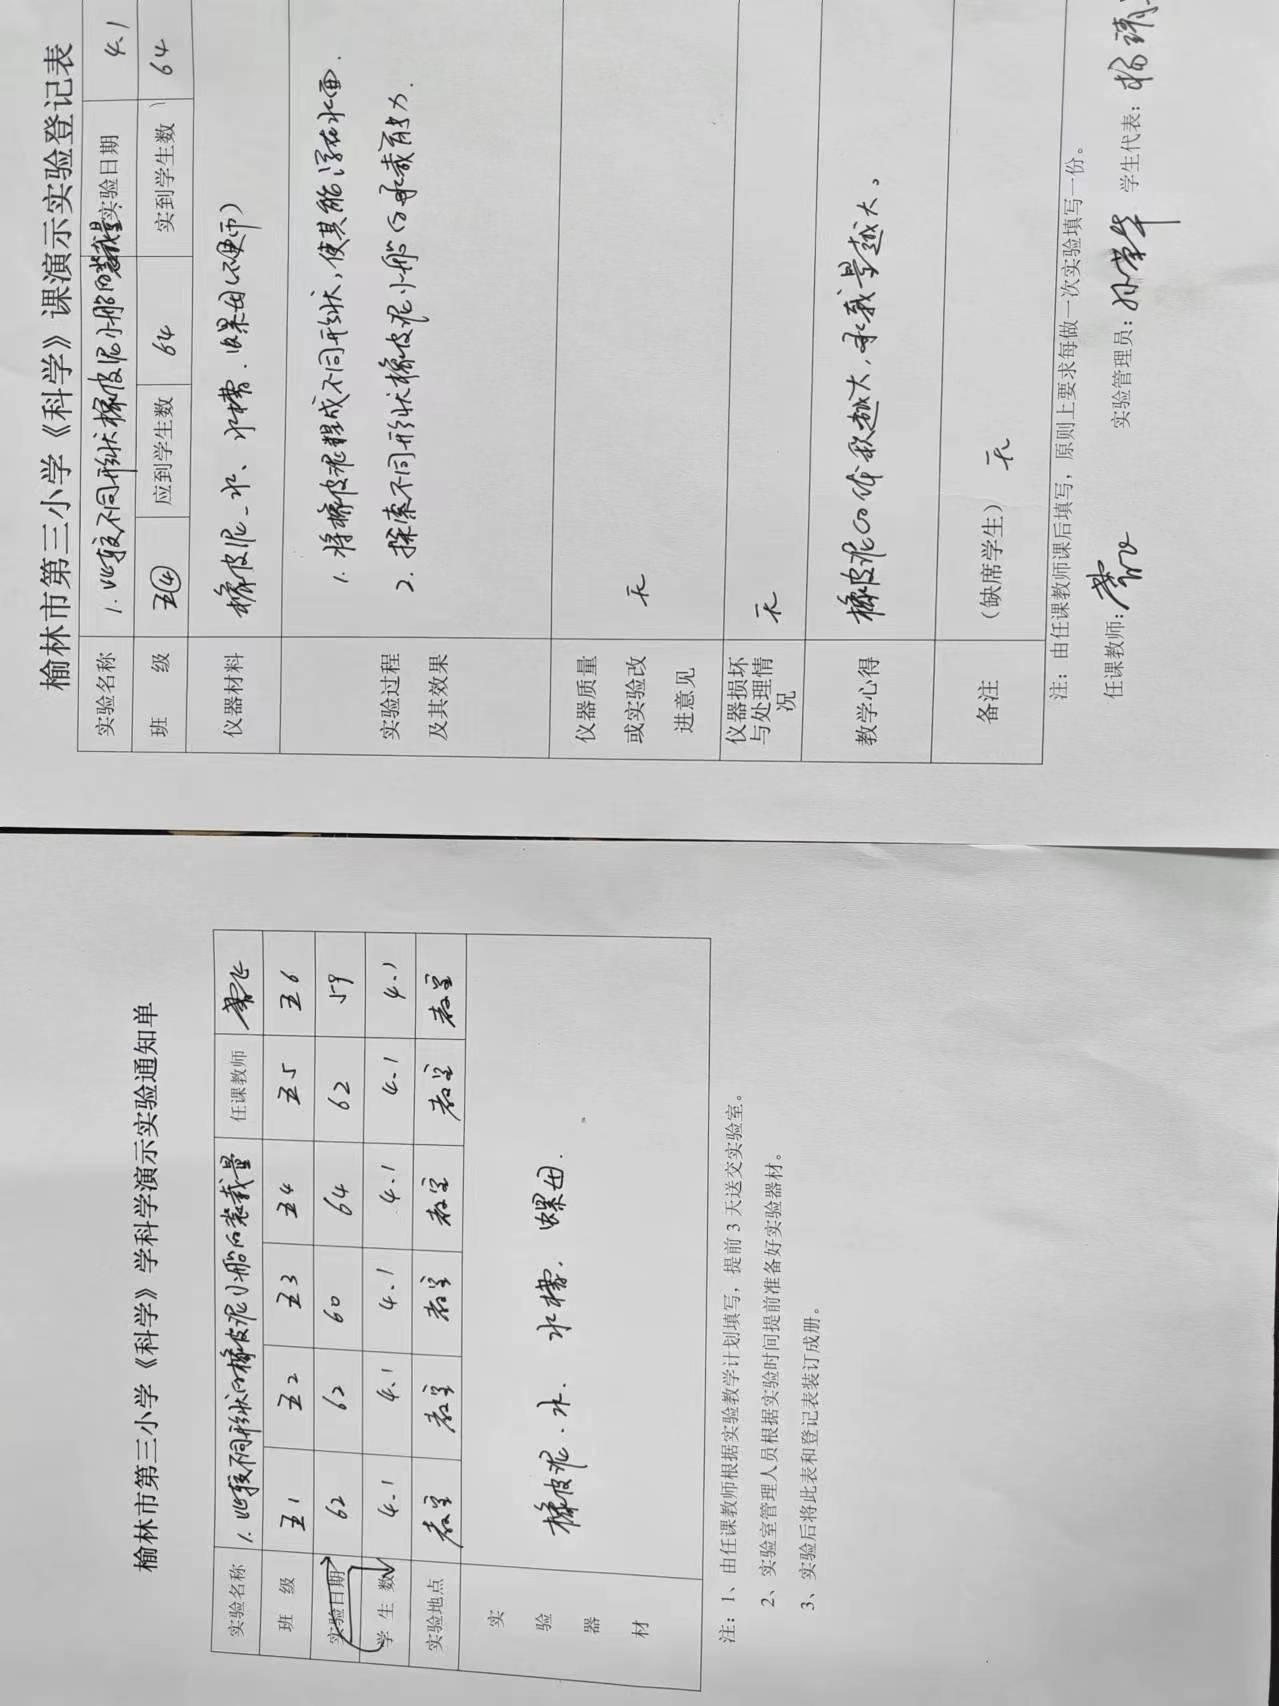 榆林市第三小学《科学》课演示实验登记表
实验名称 1.比较不同形状橡皮泥小船的装载量 实验日期 4.1
班 级 五④ 应到学生数 64 实到学生数 64
仪器材料 橡皮泥、水、水槽、螺母(硬币)
实验过程
及其效果
1. 将橡皮泥捏成不同形状,使其能浮在水面.
2. 探索不同形状橡皮泥小船的承载能力.
仪器质量
或实验改
进意见
无
仪器损坏
与处理情
况
无
教学心得 橡皮泥的体积越大,承载量越大。
备注 (缺席学生) 无
注:由任课教师课后填写,原则上要求每做一次实验填写一份。
任课教师: 实验管理员: 学生代表:
榆林市第三小学《科学》学科学演示实验通知单
实验名称 1.比较不同形状的橡皮泥小船的装载量 任课教师
班 级 五1 五2 五3 五4 五5 五6
实验日期 62 62 60 64 62 59
学 生 数 4.1 4.1 4.1 4.1 4.1 4.1
实验地点 教室 教室 教室 教室 教室 教室
实
验
器
材
橡皮泥、水、水槽、螺母.
注:1、由任课教师根据实验教学计划填写,提前 3 天送交实验室。
2、实验室管理人员根据实验时间提前准备好实验器材。
3、实验后将此表和登记表装订成册。